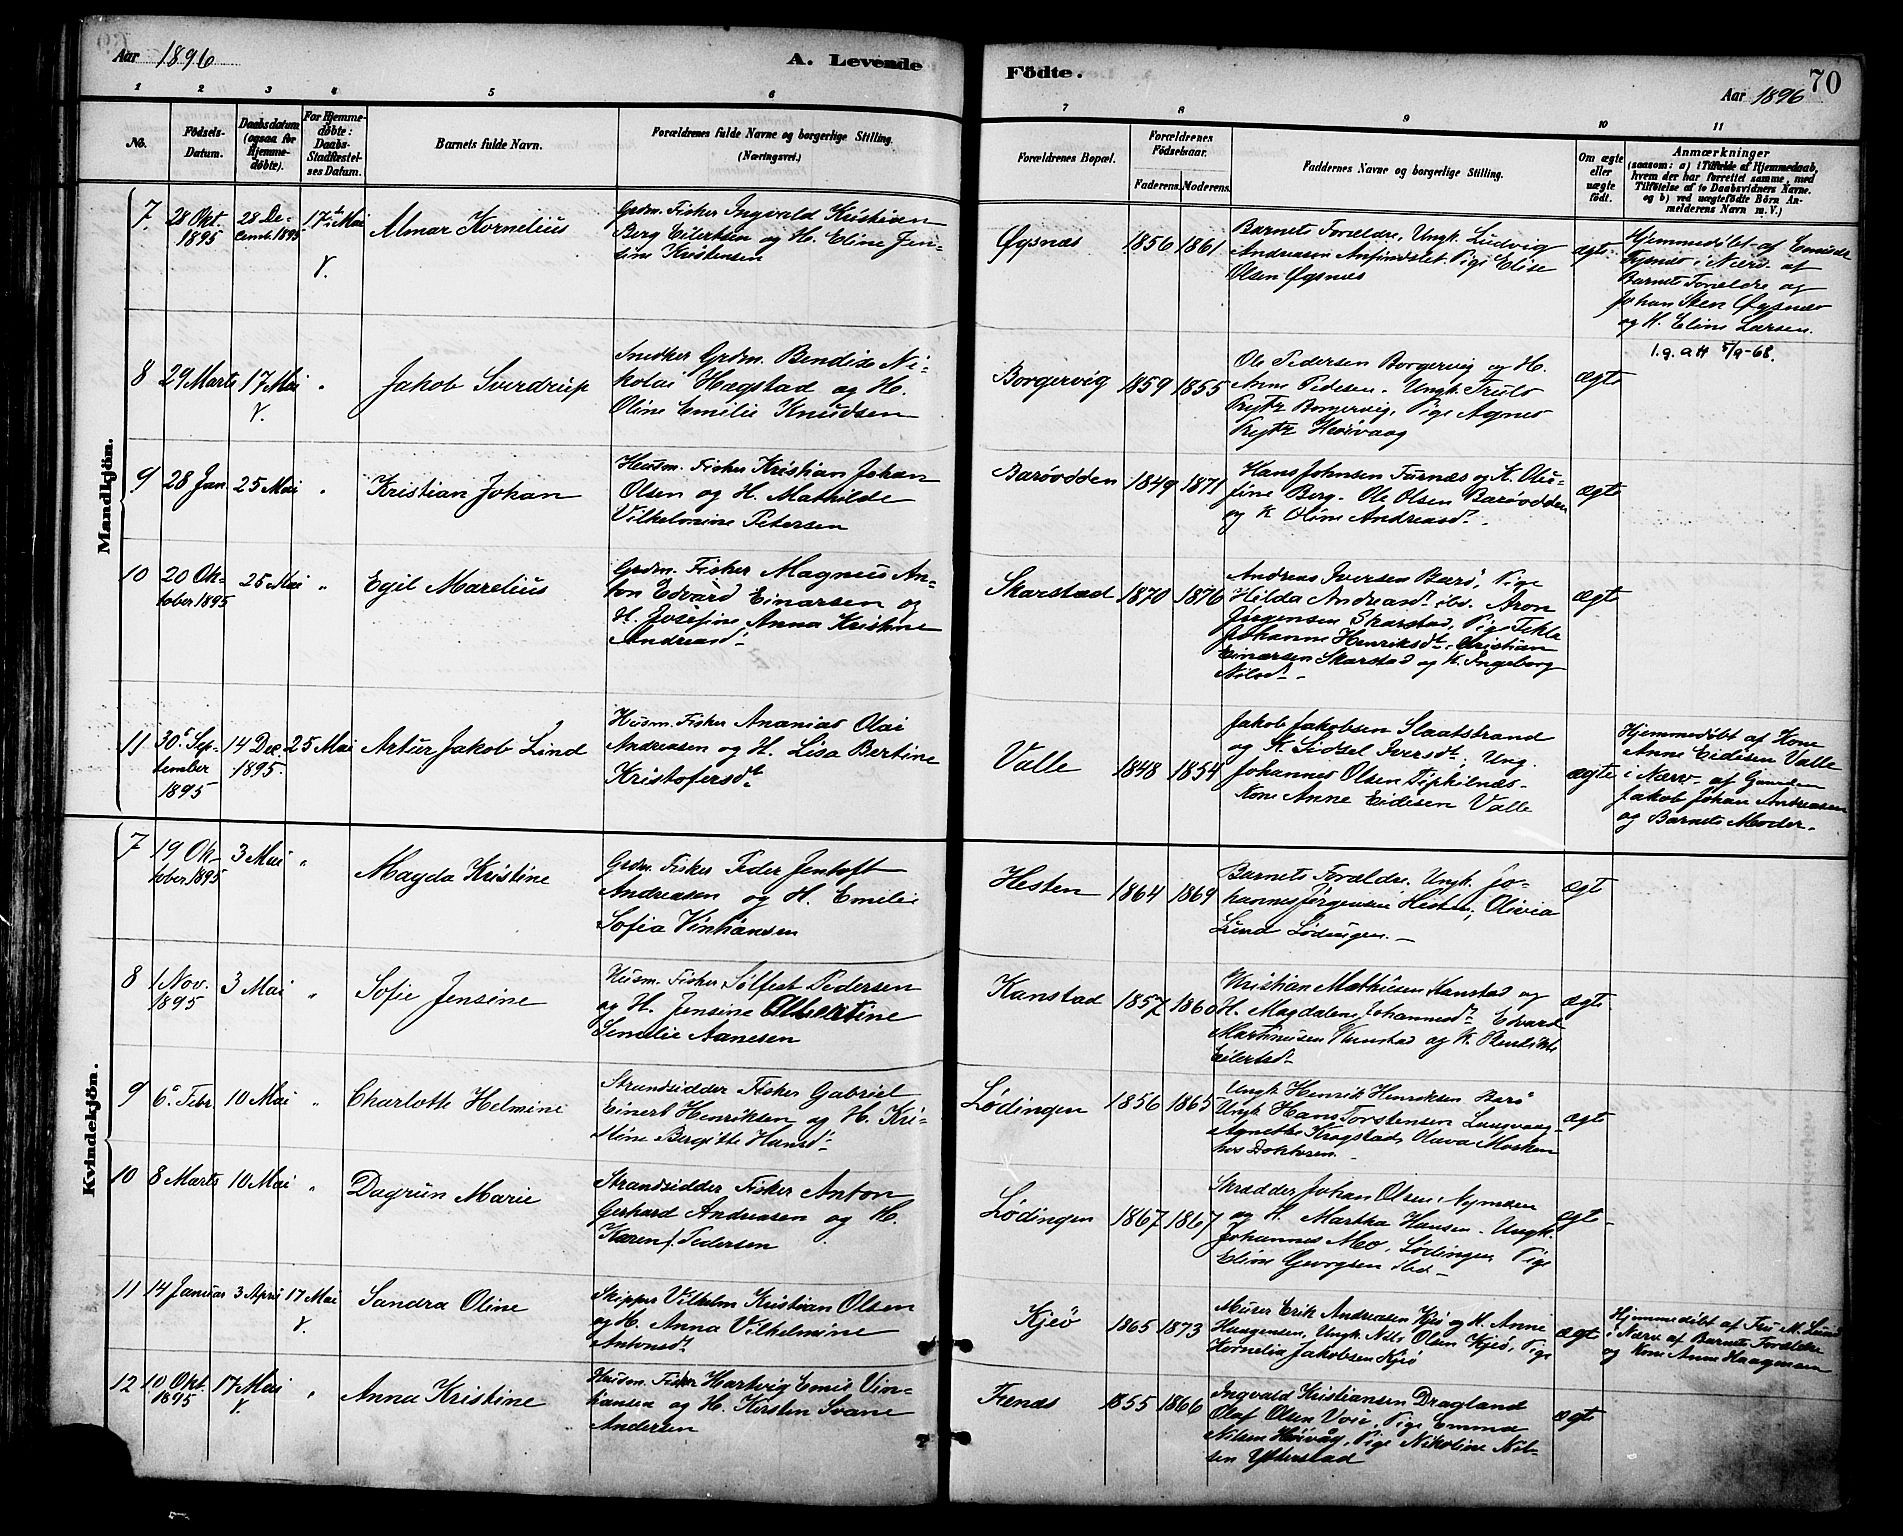 Aar 1896
A. Levende
Födte.
Aar 1896
70
1
2
3
4
5
6
7
8
9
10
11
No.
Födsels-
Datum.
Daabsdatum
(ogsaa for
Hjemme-
døbte).
For Hjemme-
døbte:
Daabs-
Stadfæstel-
ses Datum.
Barnets fulde Navn.
Forældrenes fulde Navne og borgerlige Stilling.
(Næringsvei.)
Forældrenes Bopæl.
Forældrenes
Födselsaar.
Faderens.
Moderens.
Faddernes Navne og borgerlige Stilling.
Om ægte
eller
uægte
født.
Anmærkninger
(saasom: a) i Tilfælde af Hjemmedaab,
hvem der har forrettet samme, med
Tilføielse af to Daabsvidners Navne.
og b) ved uægtefødte Börn An-
melderens Navn m. V.)
Mandkjön.
7.
28 Okt.
1895
28 De-
cemb. 1895
17de Mai
Almar Kornelius
Grdm. Fisker Ingvald Kristian
Berg Eilertsen og H. Eline Jen-
sine Kristensen
Øgsnæs
1856
1861
Barnets Forældre, Ungk. Ludvig
Andreasen Anfindslet. Pige Elise
Olsen Øgsnæs
ægte
Hjemmedøbt af
i Nærv. af
Barnets Forældre og
Johan Sten Øgsnæs
og K. Eline Larsen.
8
29 Marts
17 Mai
"
Jakob Sverdrup
Snedker Grdm. Bendiks Ni-
kolai Hægstad og H.
Oline Emilie Knudsen
Borgervig
1859
1855
Ole Pedersen Borgervig og H.
Anne Pedersen. Ungk. Truls
Prytz Borgervig, Pige Agnes
Prytz Heivaag
ægte
1.g. att 5/9-68.
9
28 Jan.
25 Mai
"
Kristian Johan
Husm. Fisker Kristian Johan
Olsen og H. Mathilde
Vilhelmine Petersen
Barøodden
1849
1871
Hans Johnsen Furnæs og K. Olu-
fine Berg. Ole Olsen Barøodden
og K Oline Andreasdt.
ægte
10
20 Ok-
tober 1895
25 Mai
"
Egil Marelius
Grdm. Fisker Magnus An-
ton Edvard Einarsen og
H. Josefine Anna Kristine
Andreasdt.
Skarstad
1870
1876
Andreas Iversen Barø, Pige
Hilda Andreasdt. ibd. Aron
Jørgensen Skarstad, Pige Tekla
Johanne Henriksdt., Kristian
Einarsen Skarstad og K. Ingeborg
Nilsdt.
ægte
11
30 Sep-
tember
1895
14 Dec.
1895.
25 Mai
Artur Jakob Lind
Husm. Fisker Ananias Olai
Andreasen og H. Lisa Bertine
Kristofersdt.
Valle
1848
1854
Jakob Jakobsen Slaatstrand
og K. Sidsel Iversdt., Ung.
Johannes Olsen
Kone Anne Eidisen Valle
ægte
Hjemmedøbt af Kone
Anne Eidisen Valle
i Nærv. af
Jakob Johan Andreasen
og Barnets Moder.
Kvindekjön.
7
19 Ok-
tober 1895
3 Mai
"
Magda Kristine
Grdm. Fisker Peder Jentoft
Andreasen og H. Emelie
Sofia Vinhansen
Hesten
1864
1869
Barnets Forældre. Ungk. Jo-
hannes Jørgensen Hesten, Olivia
Lund Lødingen.
ægte
8
1 Nov.
1895
3 Mai
"
Sofie Jensine
Husm. Fisker Sølfest Pedersen
og H. Jensine Albertine
Semelie Aanesen
Kanstad
1857
1860
Kristian Mathisen Kanstad og
H. Magdalene Johannesdt. Edvard
Martinusen Kanstad og K
Eilertsdt.
ægte
9
6 Febr.
10 Mai
"
Charlotte Helmine
Strandsidder Fisker Gabriel
Einert Henriksen og H. Kri-
stine Bergitte Hansdt.
Lødingen
1856
1865
Ungk Henrik Henriksen Barø
Ungk Hans Torstensen Langvaag
Agnethe Krogstad, Olava Mosken
hos Doktoren.
ægte
10
8 Marts
10 Mai
"
Dagrun Marie
Strandsidder Fisker Anton
Gerhard Andreasen og H.
Karen J. Pedersen
Lødingen
1867
1867
Skrædder Johan Olsen Nymoen
og H. Martha Hansen. Ungk.
Johannes Moe, Lødingen, Pige
Eline Georgsen ibd.
ægte
11
14 Januar
3 April
17 Mai
Sandra Oline
Skipper Vilhelm Kristian Olsen
og H. Anna Vilhelmine
Antonsdt.
Kjeø
1865
1873
Murer Erik Andreasen Kjeø og K. Anne
Haagensen, Ungk. Nils Olsen Kjeø, Pige
Kornelia Jakobsen Kjeø
ægte
Hjemmedøbt af Fru M. Lund
i Nærv. af Barnets Forældre
og Kone Anne Haagensen
12
10 Okt.
1895
17 Mai
"
Anna Kristine
Husm. Fisker Hartvig Emil Vin-
hansen og H. Kirsten Svane
Andersen
Fenæs
1855
1866
Ingvald Kristiansen Dragland
Olaf Olsen Voie, Pige Emma
Nilsen Heivåg, Pige Nikoline Nil-
sen Ytterstad
ægte